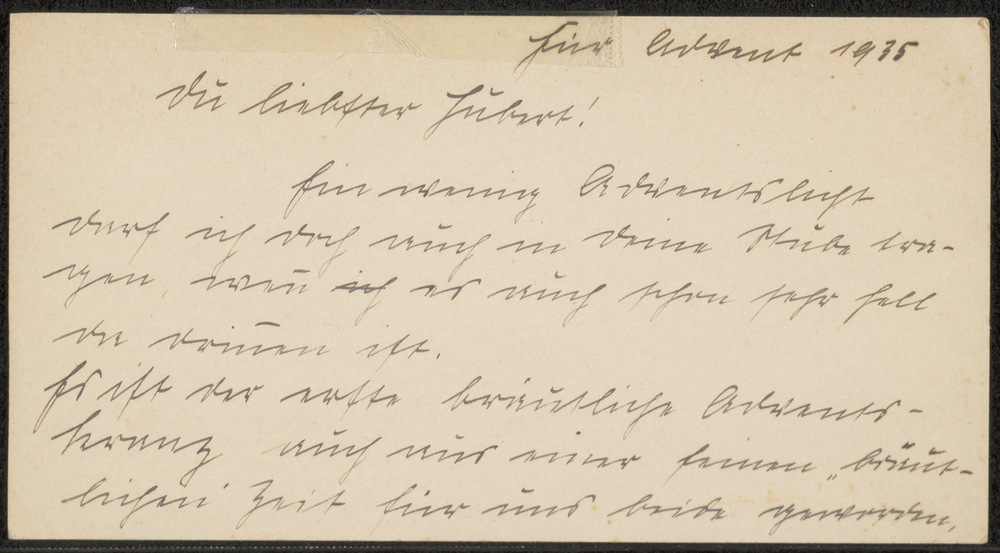 Für Advent 1935
Du liebster Hubert!
Ein wenig Adventslicht
darf ich doch auch in deine Stube tra-
gen, weñ ich es auch schon sehr hell
da driñen ist.
Es ist der erste bräutliche Advents-
kranz auch aus einer feinen „bräut-
lichen" Zeit für uns beide geworden,